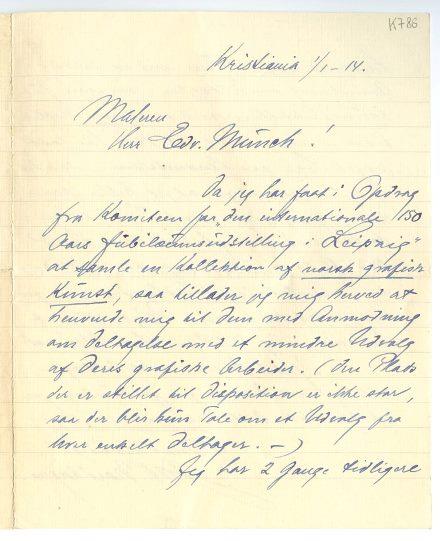 K786
Kristiania 1/1 - 14.
Maleren
Herr Edv. Münch!
Da jeg har faat i Opdrag
fra Komiteen for "den internationale 150
Aars Jubilæumsudstilling i Leipzig"
at samle en Kollektion af norsk grafisk
Kunst, saa tillader jeg mig herved at
henvende mig til dem med Anmodning
om deltagelse med et mindre Udvalg
af deres grafiske Arbeider. (den Plads
der er stillet til disposition er ikke stor,
saa der blir kun Tale om et Udvalg fra
hver enkelt deltager. —)
Jeg har 2 Gange tidligere